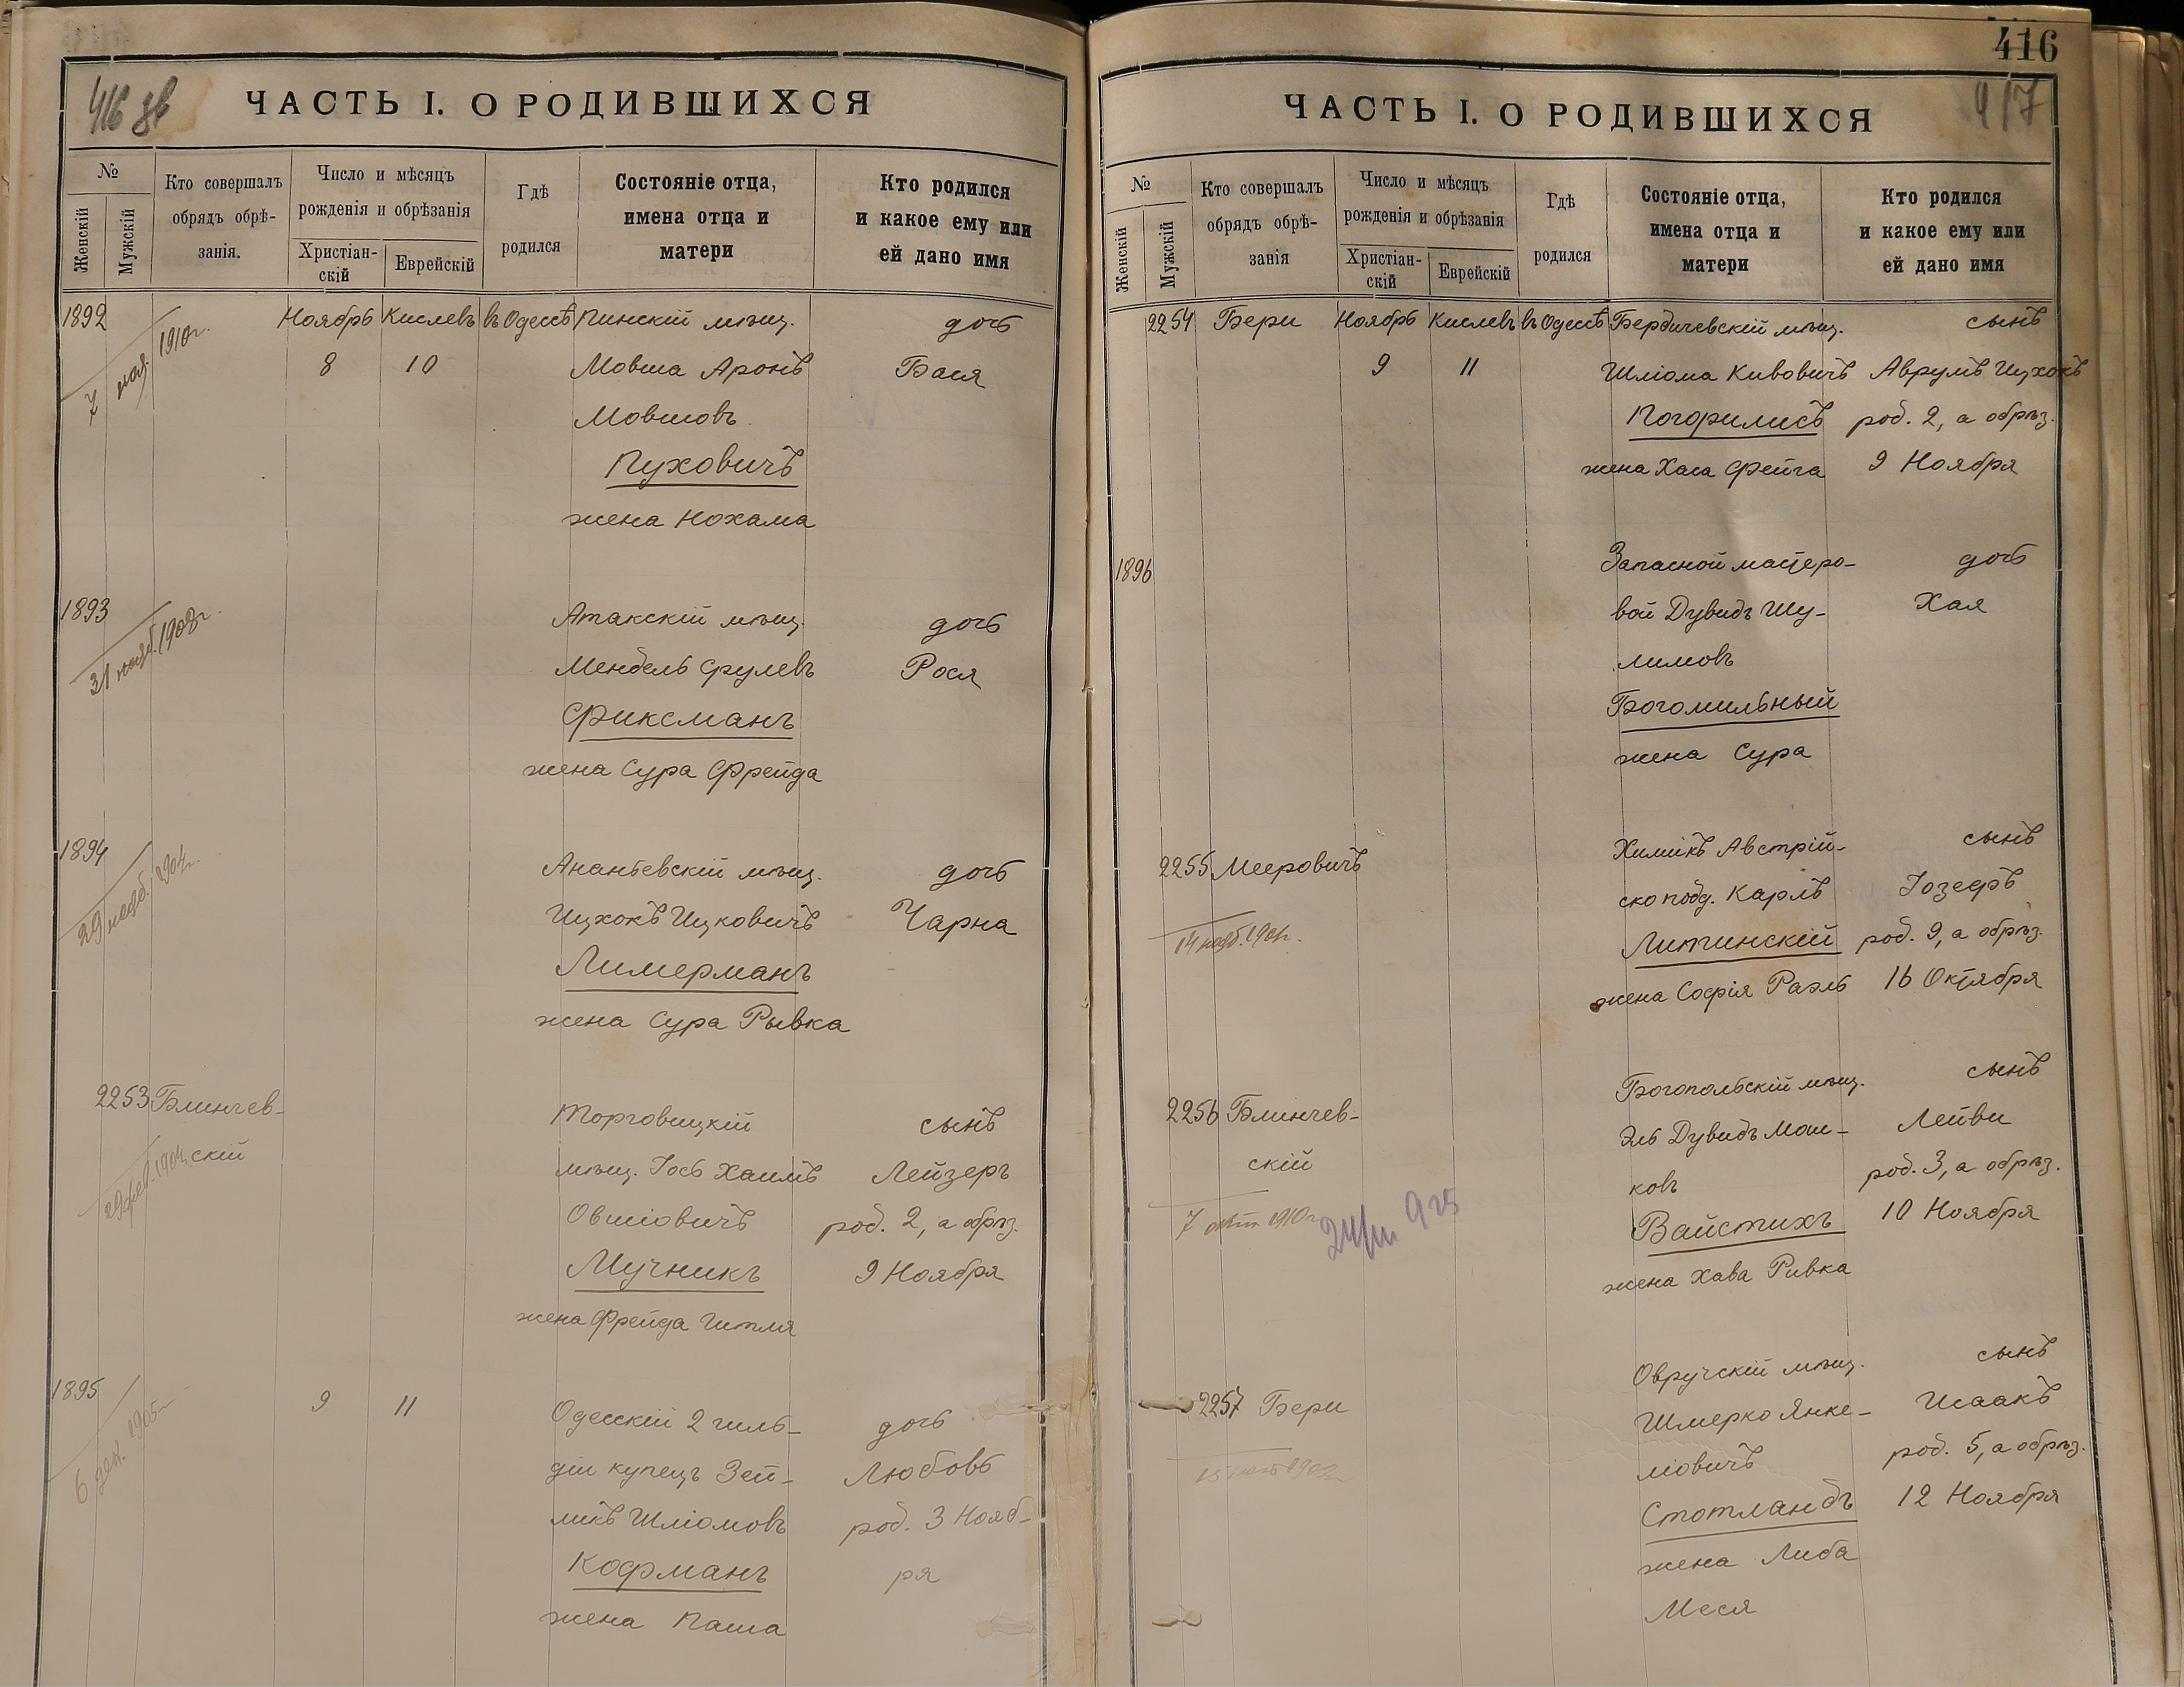 416 зв
ЧАСТЬ I. О РОДИВШИХСЯ
№
Женскій
Мужскій
Кто совершалъ
обрядъ обрѣ-
занія.
Число и мѣсяцъ
рожденія и обрѣзанія
Христіан-
скій
Еврейскій
Гдѣ
родился
Состояніе отца,
имена отца и
матери
Кто родился
и какое ему или
ей дано имя
1892 Ноябрь Кислевъ въ Одессѣ Пинскій мѣщ. дочь
7 1910г.
8 10 Мовша Аронъ Бася
Мовшовъ
Пуховичъ
жена Нохама
1893 Атакскій мѣщ. дочь
31 1908г.
Мендель Срулевъ Рося
Фиксманъ
жена Сура Фрейда
1894 Ананьевскій мѣщ. дочь
29 1904г.
Ицхокъ Ицковичъ Чарна
Лимерманъ
жена Сура Рывка
2253 Блинчев-
скій
29 1904
Торговицкій сынъ
мѣщ. Іось Хаимъ Лейзеръ
Овшіовичъ род. 2, а обрѣз.
Мучникъ 9 Ноября
жена Фрейда Гитля
1895 9 11 Одесскій 2 гиль- дочь
6 дек. 1905г
діи купецъ Зей- Любовь
ликъ Шліомовъ род. 3 Нояб-
Кофманъ ря
жена Паша
416
417
ЧАСТЬ I. О РОДИВШИХСЯ
№
Женскій
Мужскій
Кто совершалъ
обрядъ обрѣ-
занія
Число и мѣсяцъ
рожденія и обрѣзанія
Христіан-
скій
Еврейскій
Гдѣ
родился
Состояніе отца,
имена отца и
матери
Кто родился
и какое ему или
ей дано имя
2254 Бери Ноябрь Кислевъ въ Одессѣ Бердичевскій мѣщ. сынъ
9 11 Шліома Кивовичъ Аврумъ Ицхокъ
Погорилисъ род. 2, а обрѣз.
жена Хася Фейга 9 Ноября
1896 Запасной мастеро- дочь
вой Дувидъ Шу- Хая
лимовъ
Богомильный
жена Сура
2255 Мееровичъ Химикъ Австрій- сынъ
ско подд. Карлъ Іозефъ
14 нояб. 1901г.
Литинскій род. 9, а обрѣз.
жена Софія Раэль 16 Октября
2256 Блинчев-
скій
7 1910г.
925
Богопольскій мѣщ. сынъ
Эль Дувидъ Мош- Лейви
ковъ род. 3, а обрѣз.
Вайстихъ 10 Ноября
жена Хава Ривка
2257 Бери Овручскій мѣщ. сынъ
Шмерко Янке- Исаакъ
15 1902г
ліовичъ род. 5, а обрѣз.
Стотландъ 12 Ноября
жена Либа
Меся